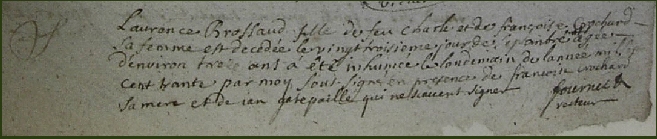 Laurence Brossaud fille de feu Charle et de françoise Crochard
sa femme est decedée le vingt troisieme jour de septanbre agee
denviron traize ans a été inhumee le landemain de lannée mil sept
cent trante par moy sous signé en presence de francoise crochard
sa mere et de ian gatepaille qui ne scavent signer
recteur